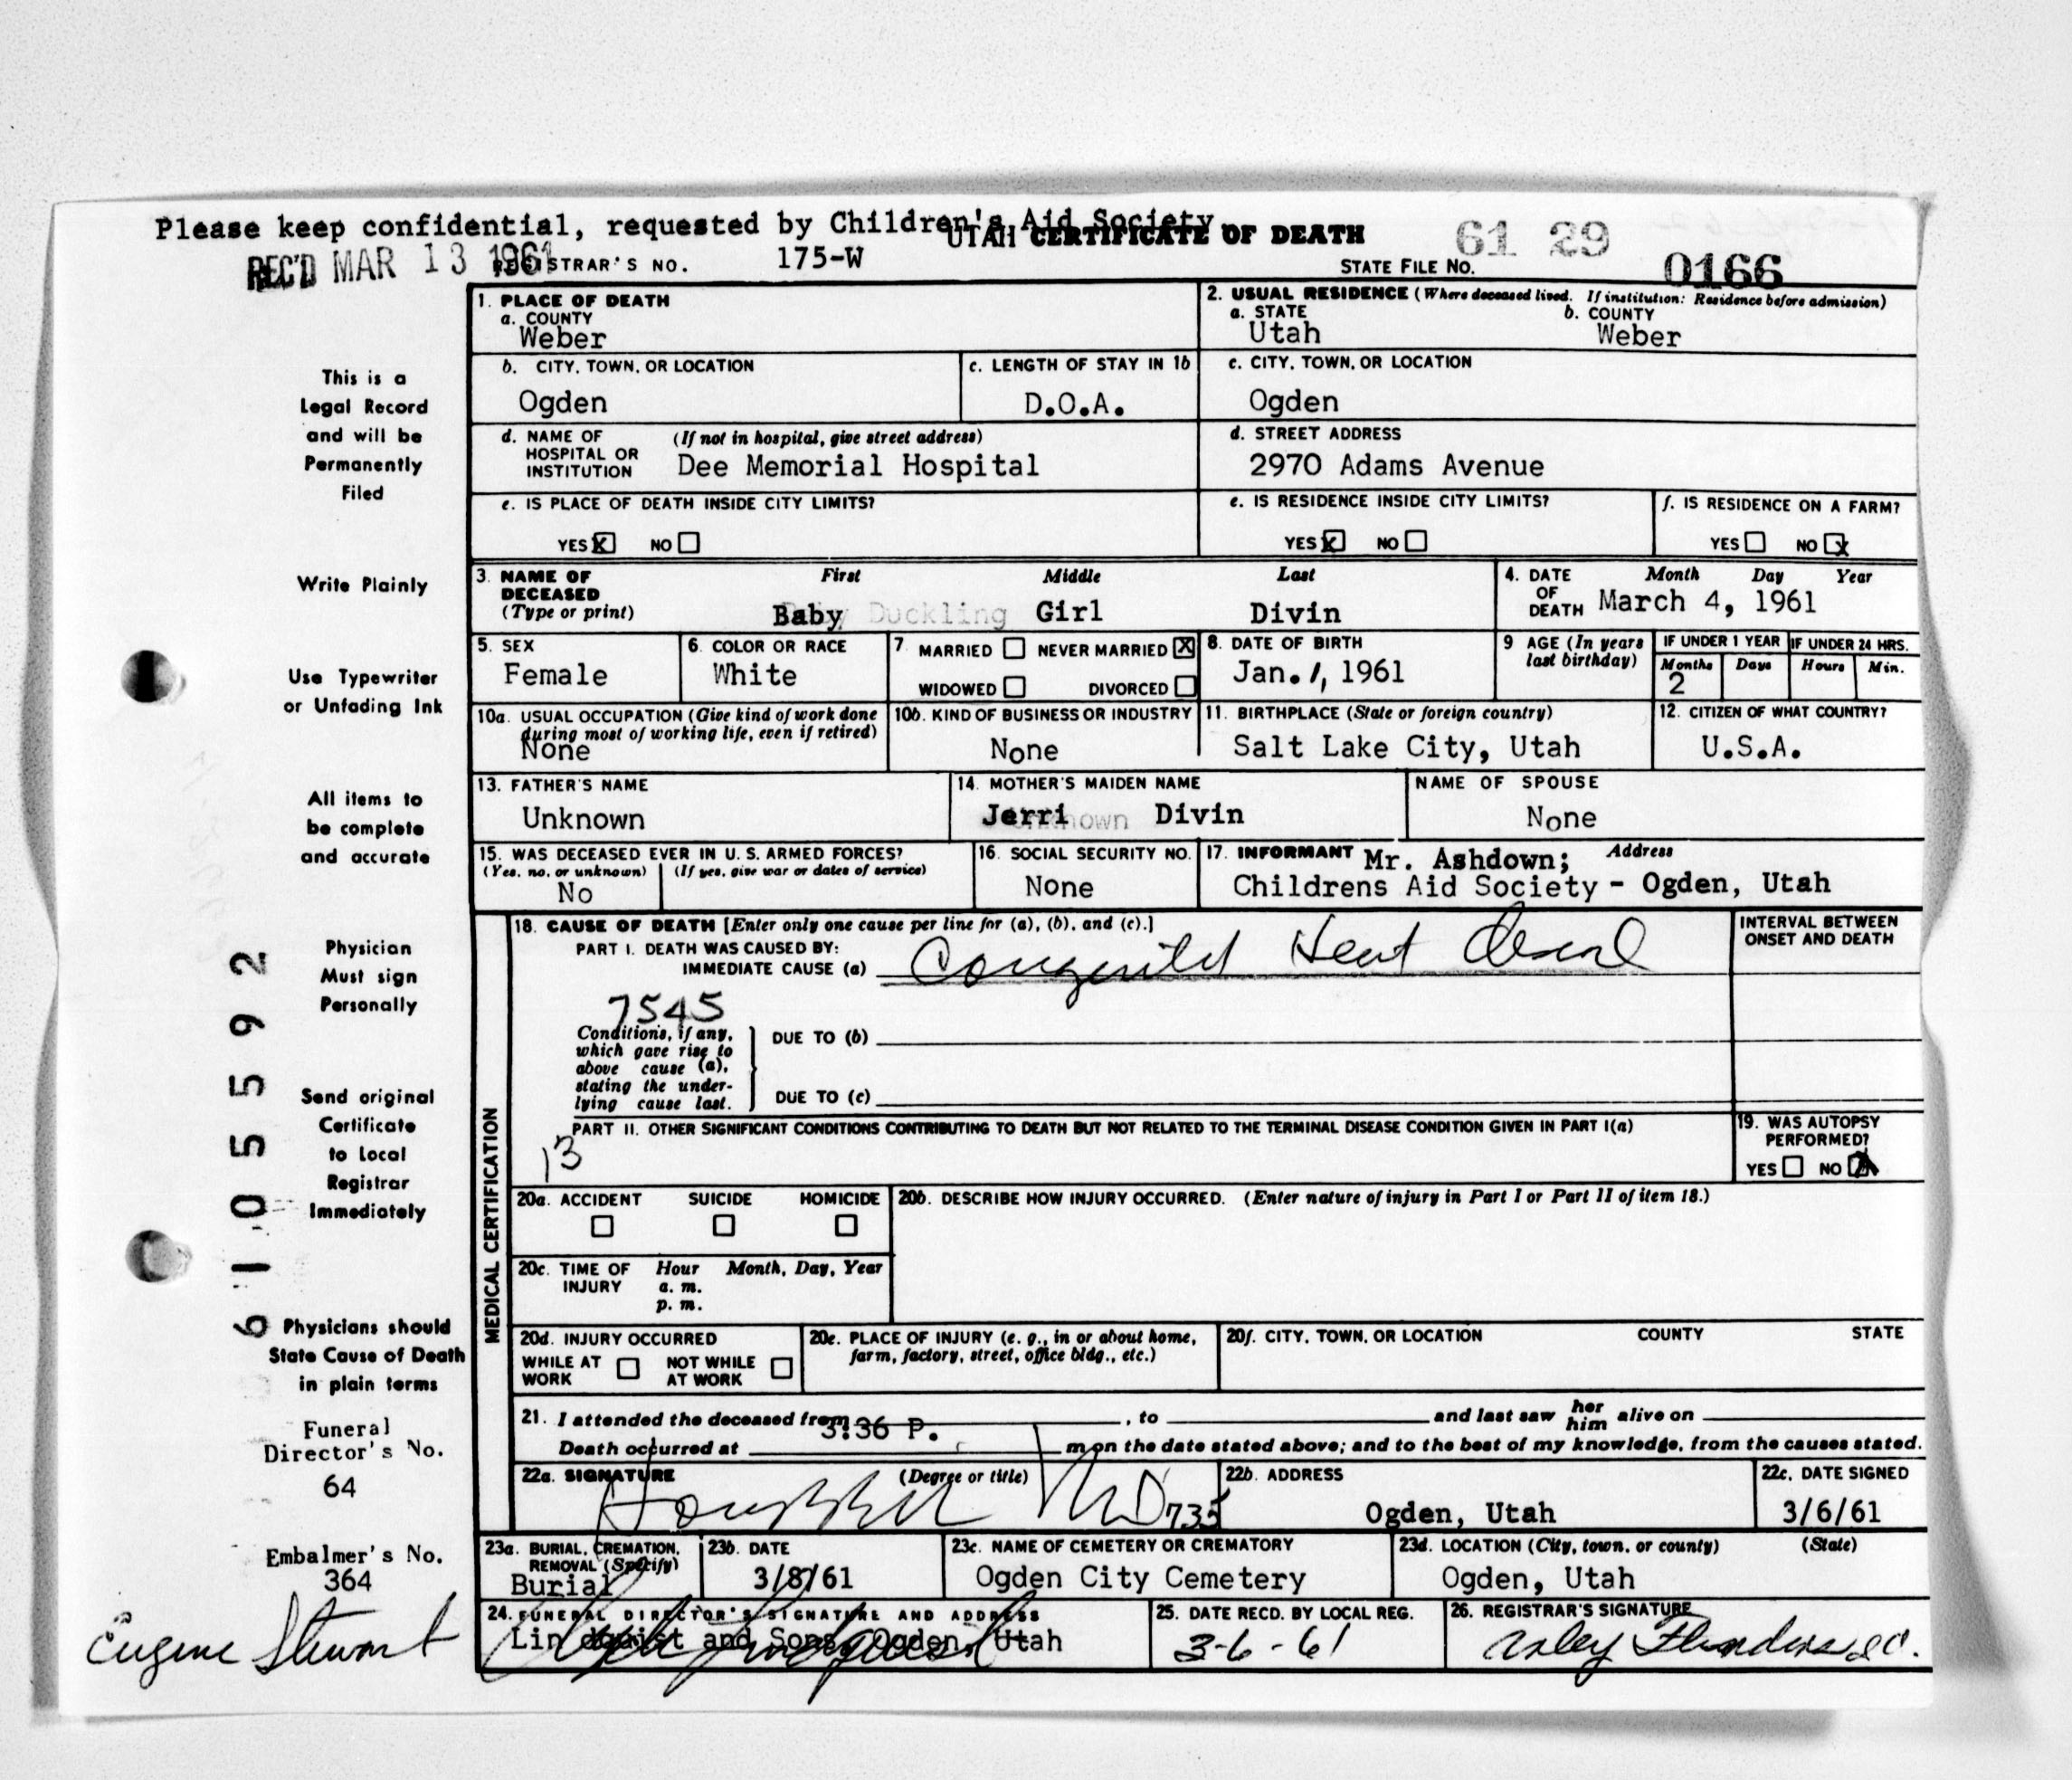 Please keep confidential, requested by Children's Aid Society
UTAH CERTIFICATE OF DEATH
61 29
REC'D MAR 13 1961
REGISTRAR'S NO. 175-W
STATE FILE NO. 0166
1. PLACE OF DEATH
a. COUNTY
Weber
2. USUAL RESIDENCE (Where deceased lived. If institution: Residence before admission)
a. STATE
Utah
b. COUNTY
Weber
b. CITY, TOWN, OR LOCATION
Ogden
c. LENGTH OF STAY IN 1b
D.O.A.
c. CITY, TOWN, OR LOCATION
Ogden
d. NAME OF HOSPITAL OR INSTITUTION
(If not in hospital, give street address)
Dee Memorial Hospital
d. STREET ADDRESS
2970 Adams Avenue
e. IS PLACE OF DEATH INSIDE CITY LIMITS?
YES X NO
e. IS RESIDENCE INSIDE CITY LIMITS?
YES X NO
f. IS RESIDENCE ON A FARM?
YES NO X
3. NAME OF DECEASED
(Type or print)
First Middle Last
Baby Duckling Girl Divin
4. DATE OF DEATH
Month Day Year
March 4, 1961
5. SEX
Female
6. COLOR OR RACE
White
7. MARRIED NEVER MARRIED X
WIDOWED DIVORCED
8. DATE OF BIRTH
Jan. 1, 1961
9 AGE (In years last birthday)
IF UNDER 1 YEAR
Months Days
2
IF UNDER 24 HRS.
Hours Min.
10a. USUAL OCCUPATION (Give kind of work done during most of working life, even if retired)
None
10b. KIND OF BUSINESS OR INDUSTRY
None
11. BIRTHPLACE (State or foreign country)
Salt Lake City, Utah
12. CITIZEN OF WHAT COUNTRY?
U.S.A.
13. FATHER'S NAME
Unknown
14. MOTHER'S MAIDEN NAME
Jerri Divin
NAME OF SPOUSE
None
15. WAS DECEASED EVER IN U. S. ARMED FORCES?
(Yes, no, or unknown) (If yes, give war or dates of service)
No
16. SOCIAL SECURITY NO.
None
17. INFORMANT Address
Mr. Ashdown;
Childrens Aid Society - Ogden, Utah
MEDICAL CERTIFICATION
18. CAUSE OF DEATH [Enter only one cause per line for (a), (b), and (c).]
PART I. DEATH WAS CAUSED BY:
IMMEDIATE CAUSE (a) Congenital Heart
INTERVAL BETWEEN ONSET AND DEATH
7545
Conditions, if any,
which gave rise to
above cause (a),
stating the under-
lying cause last.
DUE TO (b)
DUE TO (c)
PART II. OTHER SIGNIFICANT CONDITIONS CONTRIBUTING TO DEATH BUT NOT RELATED TO THE TERMINAL DISEASE CONDITION GIVEN IN PART I(a)
13
19. WAS AUTOPSY PERFORMED?
YES NO X
20a. ACCIDENT SUICIDE HOMICIDE
20b. DESCRIBE HOW INJURY OCCURRED. (Enter nature of injury in Part I or Part II of item 18.)
20c. TIME OF INJURY
Hour Month, Day, Year
a. m.
p. m.
20d. INJURY OCCURRED
WHILE AT WORK NOT WHILE AT WORK
20e. PLACE OF INJURY (e. g., in or about home, farm, factory, street, office bldg., etc.)
20f. CITY, TOWN, OR LOCATION COUNTY STATE
21. I attended the deceased from , to and last saw her him alive on
3:36 P.
Death occurred at m on the date stated above; and to the best of my knowledge, from the causes stated.
22a. SIGNATURE (Degree or title)
MD 735
22b. ADDRESS
Ogden, Utah
22c. DATE SIGNED
3/6/61
23a. BURIAL, CREMATION, REMOVAL (Specify)
Burial
23b. DATE
3/8/61
23c. NAME OF CEMETERY OR CREMATORY
Ogden City Cemetery
23d. LOCATION (City, town, or county) (State)
Ogden, Utah
24. FUNERAL DIRECTOR'S SIGNATURE AND ADDRESS
Lindquist and Sons, Ogden, Utah
25. DATE RECD. BY LOCAL REG.
3-6-61
26. REGISTRAR'S SIGNATURE
This is a
Legal Record
and will be
Permanently
Filed
Write Plainly
Use Typewriter
or Unfading Ink
All items to
be complete
and accurate
Physician
Must sign
Personally
Send original
Certificate
to Local
Registrar
Immediately
Physicians should
State Cause of Death
in plain terms
Funeral
Director's No.
64
Embalmer's No.
364
Eugene Stewart
6105592